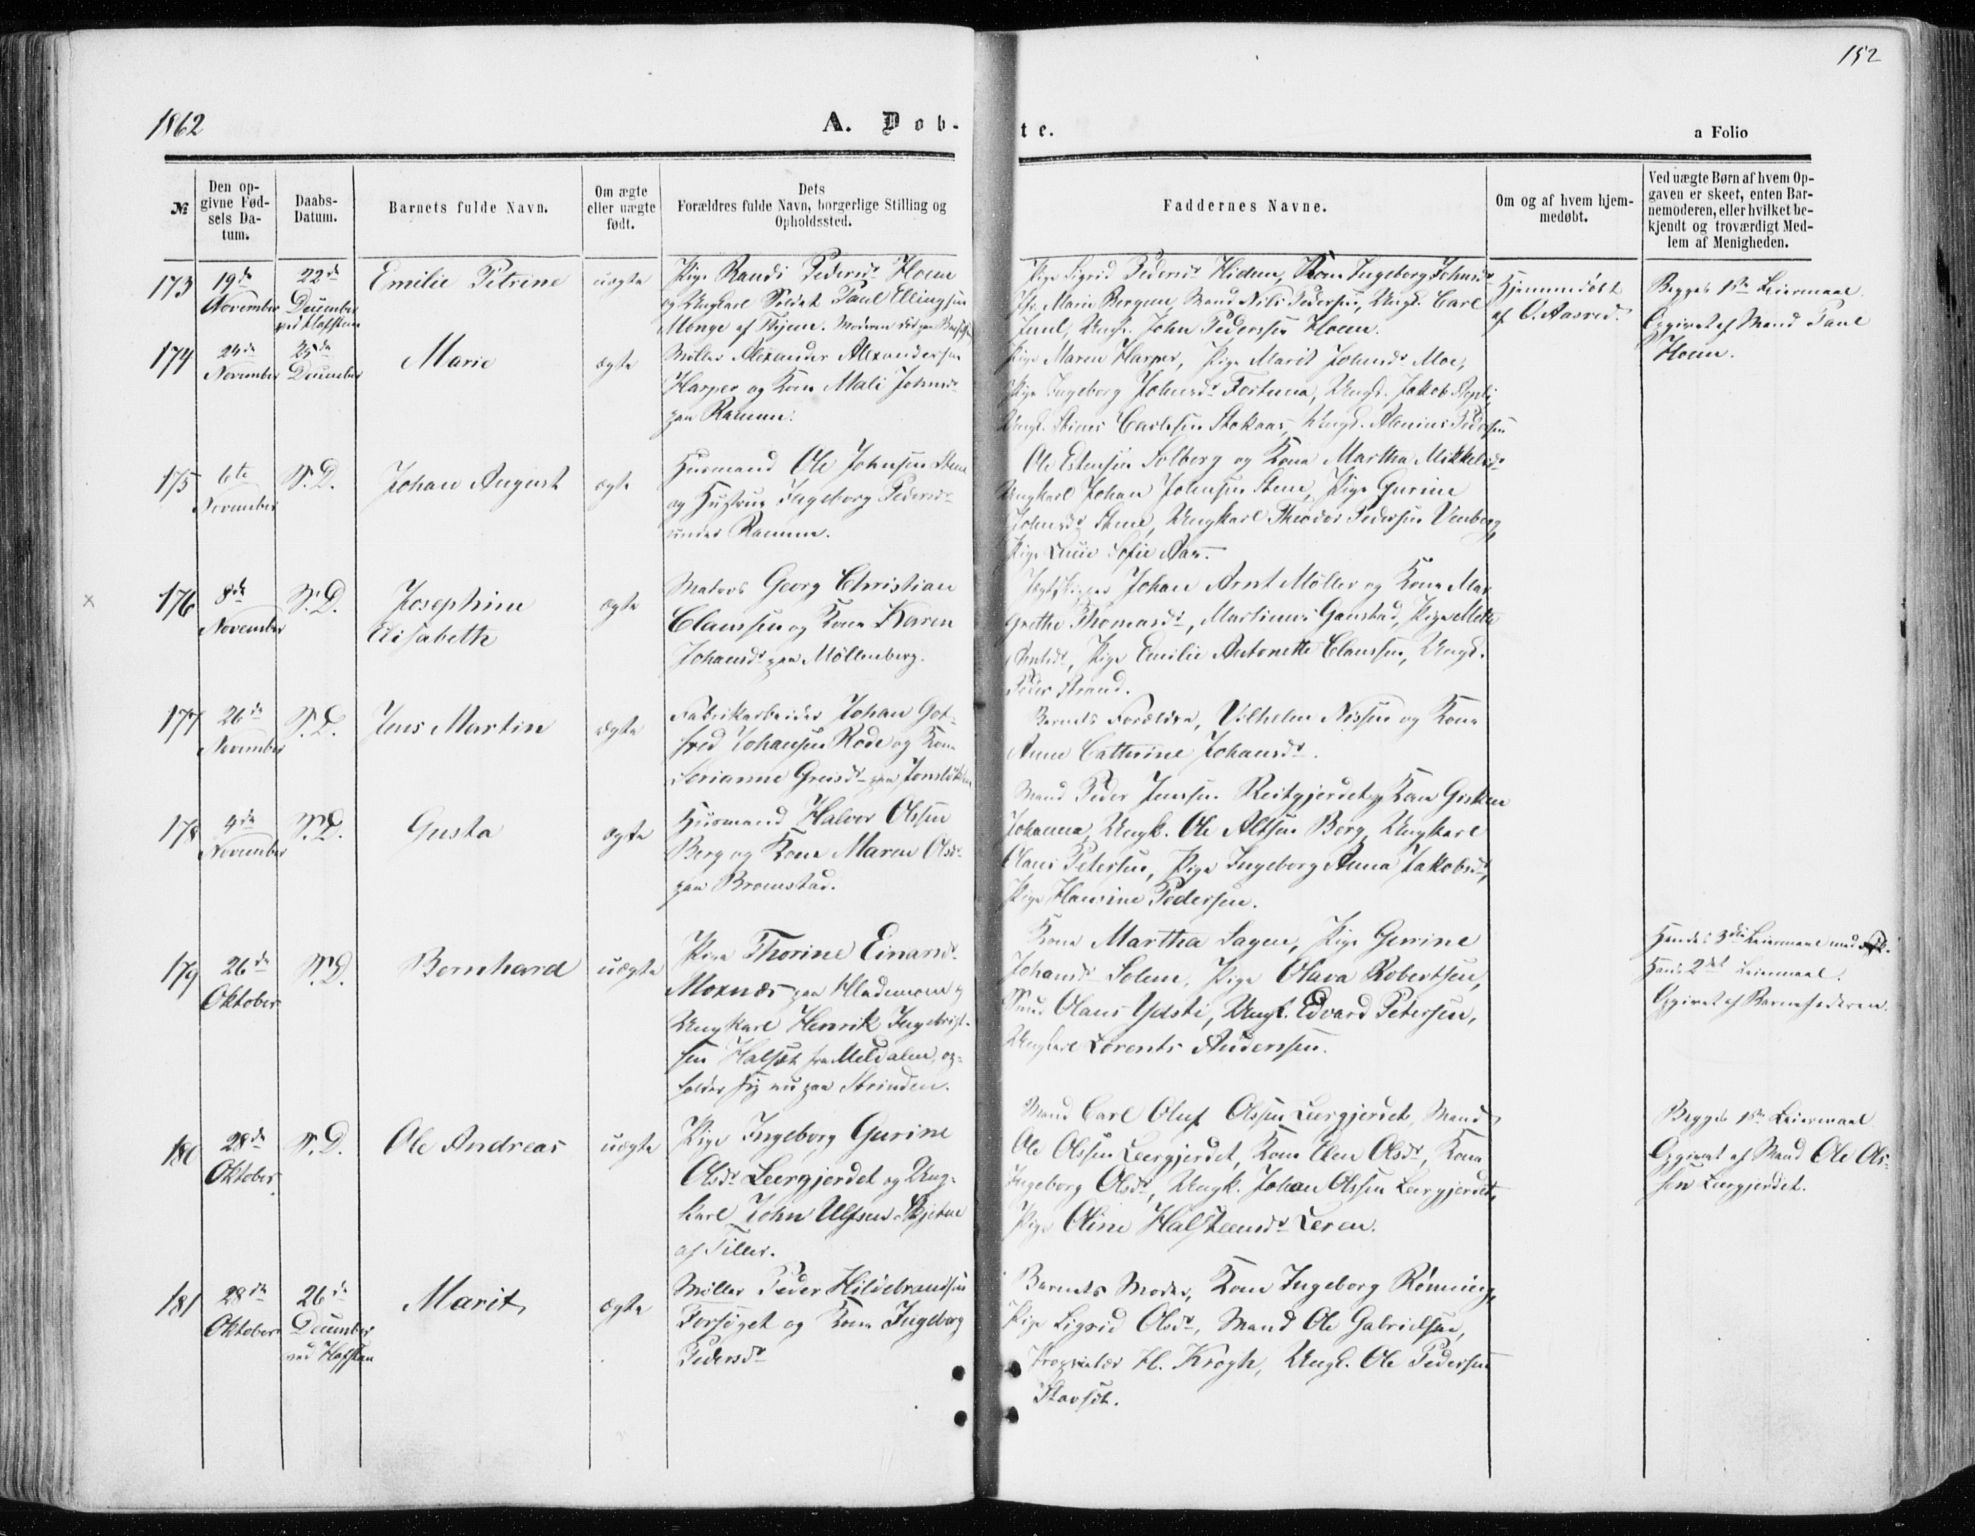 152
1862
A. Døb-
te.
a Folio
№
Den op-
givne Fød-
sels Da-
tum.
Daabs-
Datum.
Barnets fulde Navn.
Om ægte
eller uægte
født.
Dets
Forældres fulde Navn, borgerlige Stilling og
Opholdssted.
Faddernes Navne.
Om og af hvem hjem-
medøbt.
Ved uægte Børn af hvem Op-
gaven er skeet, enten Bar-
nemoderen, eller hvilket be-
kjendt og troværdigt Med-
lem af Menigheden.
173
19de
November
22de
December
ved Hofstan
Emilie Petrine
uægte
Pige Randi Pedersdr Hoem
og Ungkarl Soldat Paul Ellingsen
Monge af Stjern. Moderen
Pige Sigrid Pedersdr Hidem, Kone Ingeborg Johnsdr
Maria Bergum, Mand Nils Pedersen, Ungk. Carl
Juul, Ungk. John Pedersen Hoem.
Hjemmedøbt
af O. Aasred.
Begges 1ste Leiermaal.
Opgivet af Mand Paul
Hoem.
174
24de
November
25de
December
Marie
ægte
Møller Alexander Alexandersen
Harper og Kone Mali Johnsdr
paa Ranum.
Pige Maren Harper, Pige Marit Johnsdr Moe,
Pige Ingeborg Johnsdr Fortuna, Ungk. Jakob
Ungk. Carlsen Stokaas, Ungk. Alenius Pedersen
175
6te
November
S. D.
Johan August
ægte
Huusmand Ole Johnsen Stene
og Hustrue Ingeborg Pedersdr
under Ranum.
Ole Estensen Solberg og Kone Martha Mikkelsdr
Ungkarl Johan Johnsen Stene, Pige Gurine
Johnsdr Stene, Ungkarl Theodor Pedersen Venberg,
Pige Sofie Aas.
x
176
8de
November
S. D.
Josephine
Elisabeth
ægte
Matros Georg Christian
Claussen og Kone Karen
Johansdr paa Møllenberg.
Johan Arnt Møller og Kone Mar
grethe Thomasdr, Martinus Ganstad, Pige Mette
Arntsdr, Pige Emilie Antonette Claussen, Ungk.
Peder Strand.
177
26de
November
S. D.
Jens Martin
ægte
Fabrikarbeider Johan Got-
fred Johansen Rode og Kone
Serianne Greisdr paa
Barnets Forældre, Vilhelm Nissen og Kone
Anne Cathrine Johansdr.
178
4de
November
S. D.
Gusta
ægte
Huusmand Halvor Olsen
Berg og Kone Maren Olsdr
paa Bromstad.
Mand Peder Jensen Reitgjerdet og Kone Gisken
Johanna, Ungk. Ole Altsen Berg, Ungkarl
Claus Petersen, Pige Ingeborg Anna Jakobsdr,
Pige Hansine Pedersen.
179
26de
Oktober
S. D.
Bernhard
uægte
Pige Thorine Einarsdr
Moxnæs paa Hlademoen og
Ungkarl Henrik Ingebrigt-
sen Halset fra Meldalen, op-
holder sig nu paa Strinden.
Kone Martha Sagen, Pige Gurine
Johansdr Solem, Pige Olava Robertsen,
Mand Olaus Ydsti, Ungk. Edvard Petersen,
Ungkarl Lorents Anderssen.
Hendes 3die Leiermaal med
Hans 2det Leiermaal.
Opgivet af Barnefaderen.
180
28de
Oktober
S. D.
Ole Andreas
uægte
Pige Ingeborg Gurine
Olsdr Leergjerdet og Ung-
karl John Ulfsen Skjetne
af Tiller.
Mand Carl Oluf Olssen Leergjerdet, Mand
Ole Olssen Leergjerdet, Kone Elen Olsdr, Kone
Ingeborg Olsdr, Ungk. Johan Olssen Leergjerdet,
Pige Oline Halsteensdr Leren.
Begges 1ste Leiermaal
Opgivet af Mand Ole Ols-
sen Leergjerdet.
181
28de
Oktober
26de
December
ved Hofstan
Marit
ægte
Møller Peder Hildebrandsen
Forsøget og Kone Ingeborg
Pedersdr
Barnets Moder, Kone Ingeborg Rønning,
Pige Sigrid Olsdr, Mand Ole Gabrielsen,
Proprietær H. Krogh, Ungk. Ole Pedersen
Stavset.